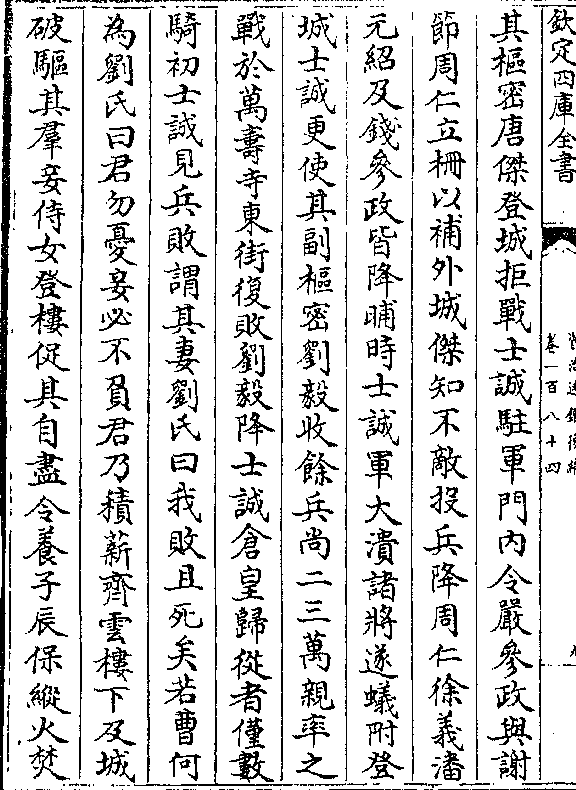 欽定四庫全書
卷一百八十四
其樞密唐傑登城拒戰士誠駐軍門内令嚴參政與謝
節周仁立柵以補外城傑知不敵投兵降周仁徐義潘
元紹及錢參政皆降晡時士誠軍大潰諸將遂蟻附登
城士誠更使其副樞密劉毅收餘兵尚二三萬親率之
戰於萬壽寺東街復敗劉毅降士誠倉皇歸從者僅數
騎初士誠見兵敗謂其妻劉氏曰我敗且死矣若曹何
為劉氏曰君勿憂妾必不負君乃積薪齊雲樓下及城
破驅其羣妾侍女登樓促其自盡令養子辰保縱火焚